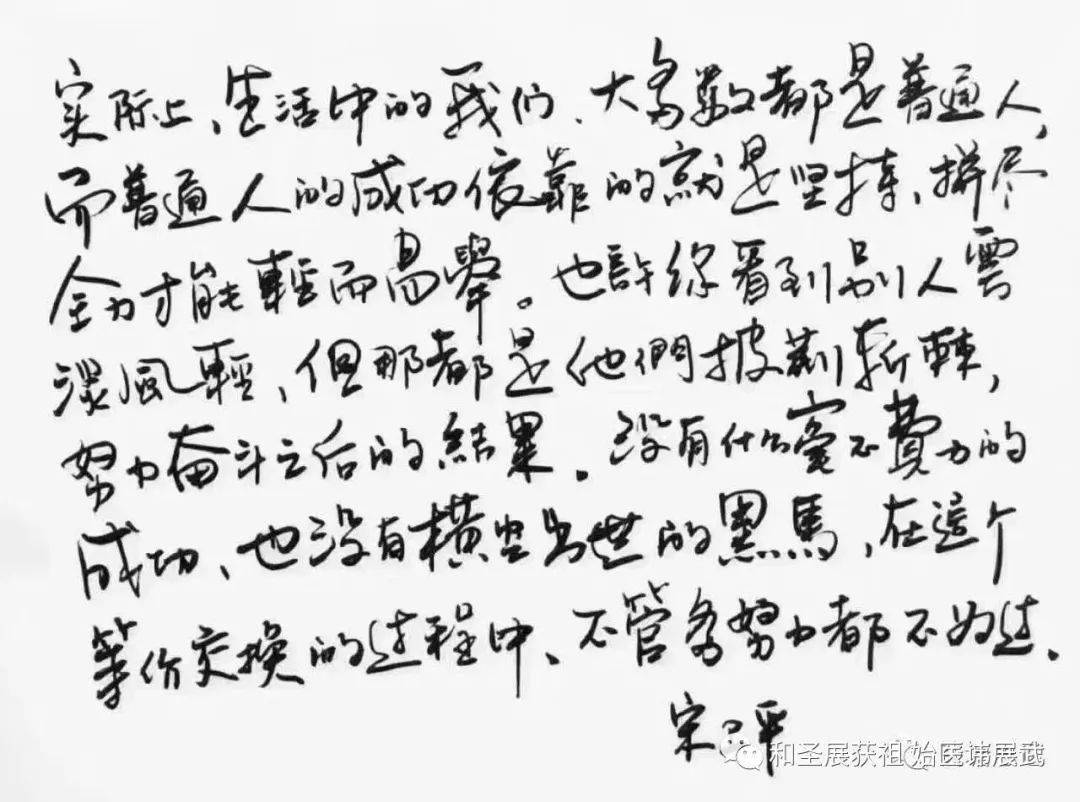 实际上、生活中的我们、大多数都是普通人,
而普通人的成功依靠的就是坚持、拼尽
全力才能輕而易舉。也許你看到别人雲
淡風輕、但那都是他們披荆斩棘,
努力奋斗之后的結果。没有什么毫不費力的
成功、也没有横空出世的黑馬,在這个
等价交换的过程中、不管多努力都不为过.
宋 平
和圣展获祖